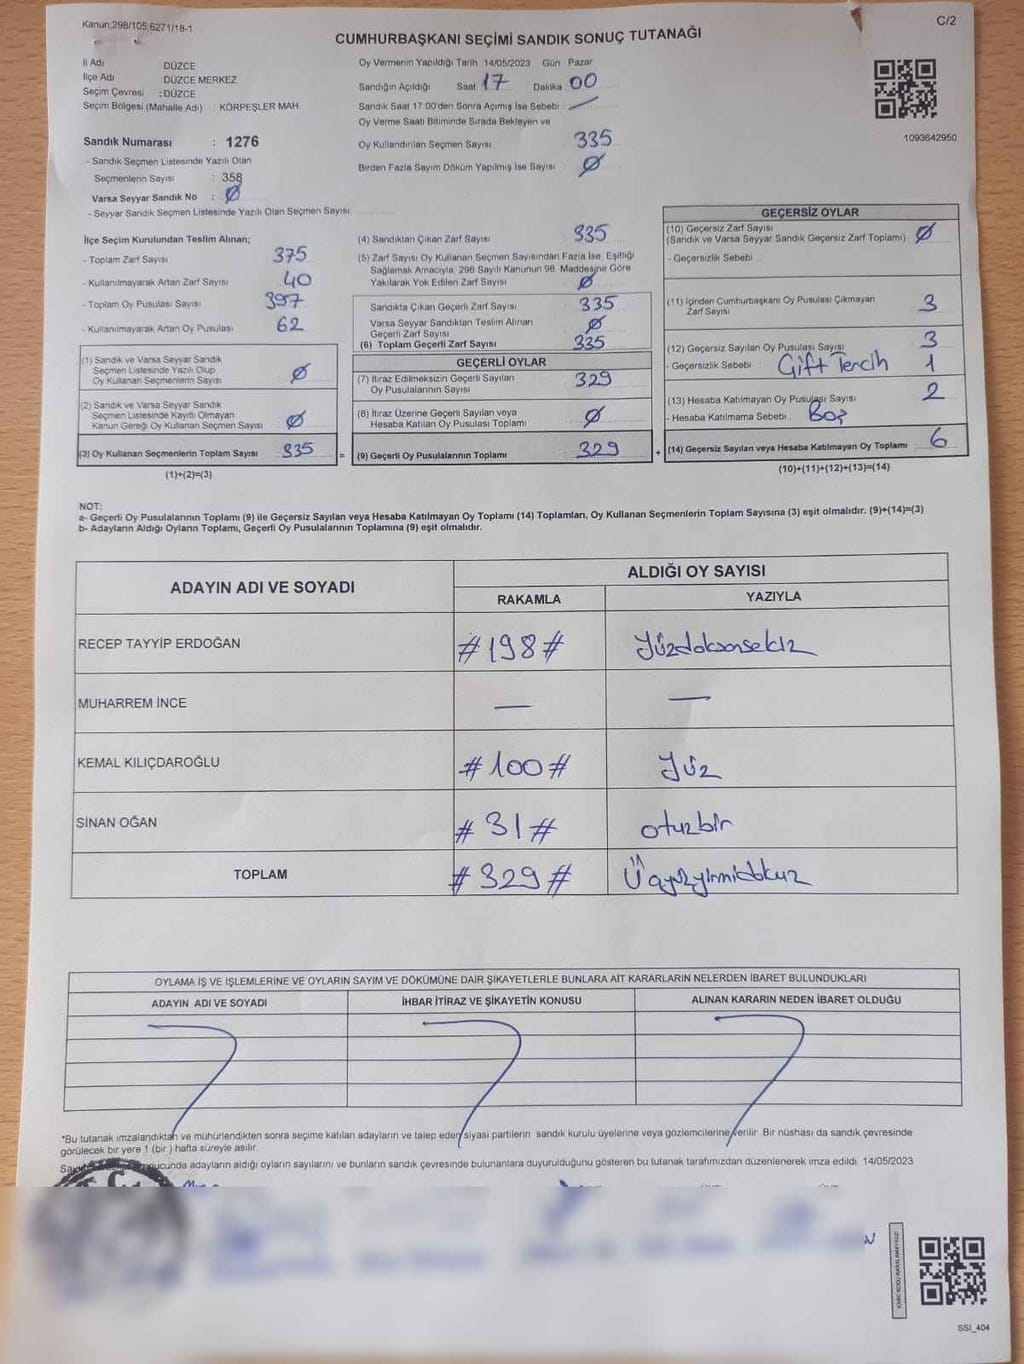 Kanun:298/105;6271/18-1
C/2
CUMHURBAŞKANI SEÇİMİ SANDIK SONUÇ TUTANAĞI
İl Adı DÜZCE
İlçe Adı DÜZCE MERKEZ
Seçim Çevresi : DÜZCE
Seçim Bölgesi (Mahalle Adı) : KÖRPEŞLER MAH
Sandık Numarası : 1276
- Sandık Seçmen Listesinde Yazılı Olan
Seçmenlerin Sayısı : 358
Varsa Seyyar Sandık No : Ø
- Seyyar Sandık Seçmen Listesinde Yazılı Olan Seçmen Sayısı
Oy Vermenin Yapıldığı Tarih 14/05/2023 Gün Pazar
Sandığın Açıldığı Saat 17 Dakika 00
Sandık Saat 17:00'den Sonra Açımış İse Sebebi : —
Oy Verme Saati Bitiminde Sırada Bekleyen ve
Oy Kullandırılan Seçmen Sayısı 335
Birden Fazla Sayım Döküm Yapılmış İse Sayısı Ø
1093642950
İlçe Seçim Kurulundan Teslim Alınan;
- Toplam Zarf Sayısı 375
- Kullanılmayarak Artan Zarf Sayısı 40
- Toplam Oy Pusulası Sayısı 397
- Kullanılmayarak Artan Oy Pusulası 62
(1) Sandık ve Varsa Seyyar Sandık
Seçmen Listesinde Yazılı Olup
Oy Kullanan Seçmenlerin Sayısı Ø
(2) Sandık ve Varsa Seyyar Sandık
Seçmen Listesinde Kayıtlı Olmayan
Kanun Gereği Oy Kullanan Seçmen Sayısı Ø
(3) Oy Kullanan Seçmenlerin Toplam Sayısı 335 =
(1)+(2)=(3)
(4) Sandıktan Çıkan Zarf Sayısı 335
(5) Zarf Sayısı Oy Kullanan Seçmen Sayısından Fazla İse, Eşitliği
Sağlamak Amacıyla, 298 Sayılı Kanunun 98. Maddesine Göre
Yakılarak Yok Edilen Zarf Sayısı Ø
Sandıkta Çıkan Geçerli Zarf Sayısı 335
Varsa Seyyar Sandıktan Teslim Alınan
Geçerli Zarf Sayısı Ø
(6) Toplam Geçerli Zarf Sayısı 335
GEÇERLİ OYLAR
(7) İtiraz Edilmeksizin Geçerli Sayılan
Oy Pusulalarının Sayısı 329
(8) İtiraz Üzerine Geçerli Sayılan veya
Hesaba Katılan Oy Pusulası Toplamı Ø
(9) Geçerli Oy Pusulalarının Toplamı 329 +
GEÇERSİZ OYLAR
(10) Geçersiz Zarf Sayısı
(Sandık ve Varsa Seyyar Sandık Geçersiz Zarf Toplamı) Ø
- Geçersizlik Sebebi
(11) İçinden Cumhurbaşkanı Oy Pusulası Çıkmayan
Zarf Sayısı 3
(12) Geçersiz Sayılan Oy Pusulası Sayısı 3
- Geçersizlik Sebebi : Çift Tercih 1
(13) Hesaba Katılmayan Oy Pusulası Sayısı 2
- Hesaba Katılmama Sebebi : Boş
(14) Geçersiz Sayılan veya Hesaba Katılmayan Oy Toplamı 6
(10)+(11)+(12)+(13)=(14)
NOT:
a- Geçerli Oy Pusulalarının Toplamı (9) ile Geçersiz Sayılan veya Hesaba Katılmayan Oy Toplamı (14) Toplamları, Oy Kullanan Seçmenlerin Toplam Sayısına (3) eşit olmalıdır. (9)+(14)=(3)
b- Adayların Aldığı Oyların Toplamı, Geçerli Oy Pusulalarının Toplamına (9) eşit olmalıdır.
ADAYIN ADI VE SOYADI ALDIĞI OY SAYISI
RAKAMLA YAZIYLA
RECEP TAYYİP ERDOĞAN #198# Yüzdoksansekiz
MUHARREM İNCE — —
KEMAL KILIÇDAROĞLU #100# Yüz
SİNAN OĞAN #31# otuzbir
TOPLAM #329# Üçyüzyirmidokuz
OYLAMA İŞ VE İŞLEMLERİNE VE OYLARIN SAYIM VE DÖKÜMÜNE DAİR ŞİKAYETLERLE BUNLARA AİT KARARLARIN NELERDEN İBARET BULUNDUKLARI
ADAYIN ADI VE SOYADI İHBAR İTİRAZ VE ŞİKAYETİN KONUSU ALINAN KARARIN NEDEN İBARET OLDUĞU
*Bu tutanak imzalandıktan ve mühürlendikten sonra seçime katılan adayların ve talep eden siyasi partilerin sandık kurulu üyelerine veya gözlemcilerine verilir. Bir nüshası da sandık çevresinde
görülecek bir yere 1 (bir) hafta süreyle asılır.
sonucunda adayların aldığı oyların sayılarını ve bunların sandık çevresinde bulunanlara duyurulduğunu gösteren bu tutanak tarafımızdan düzenlenerek imza edildi. 14/05/2023
SSI_404